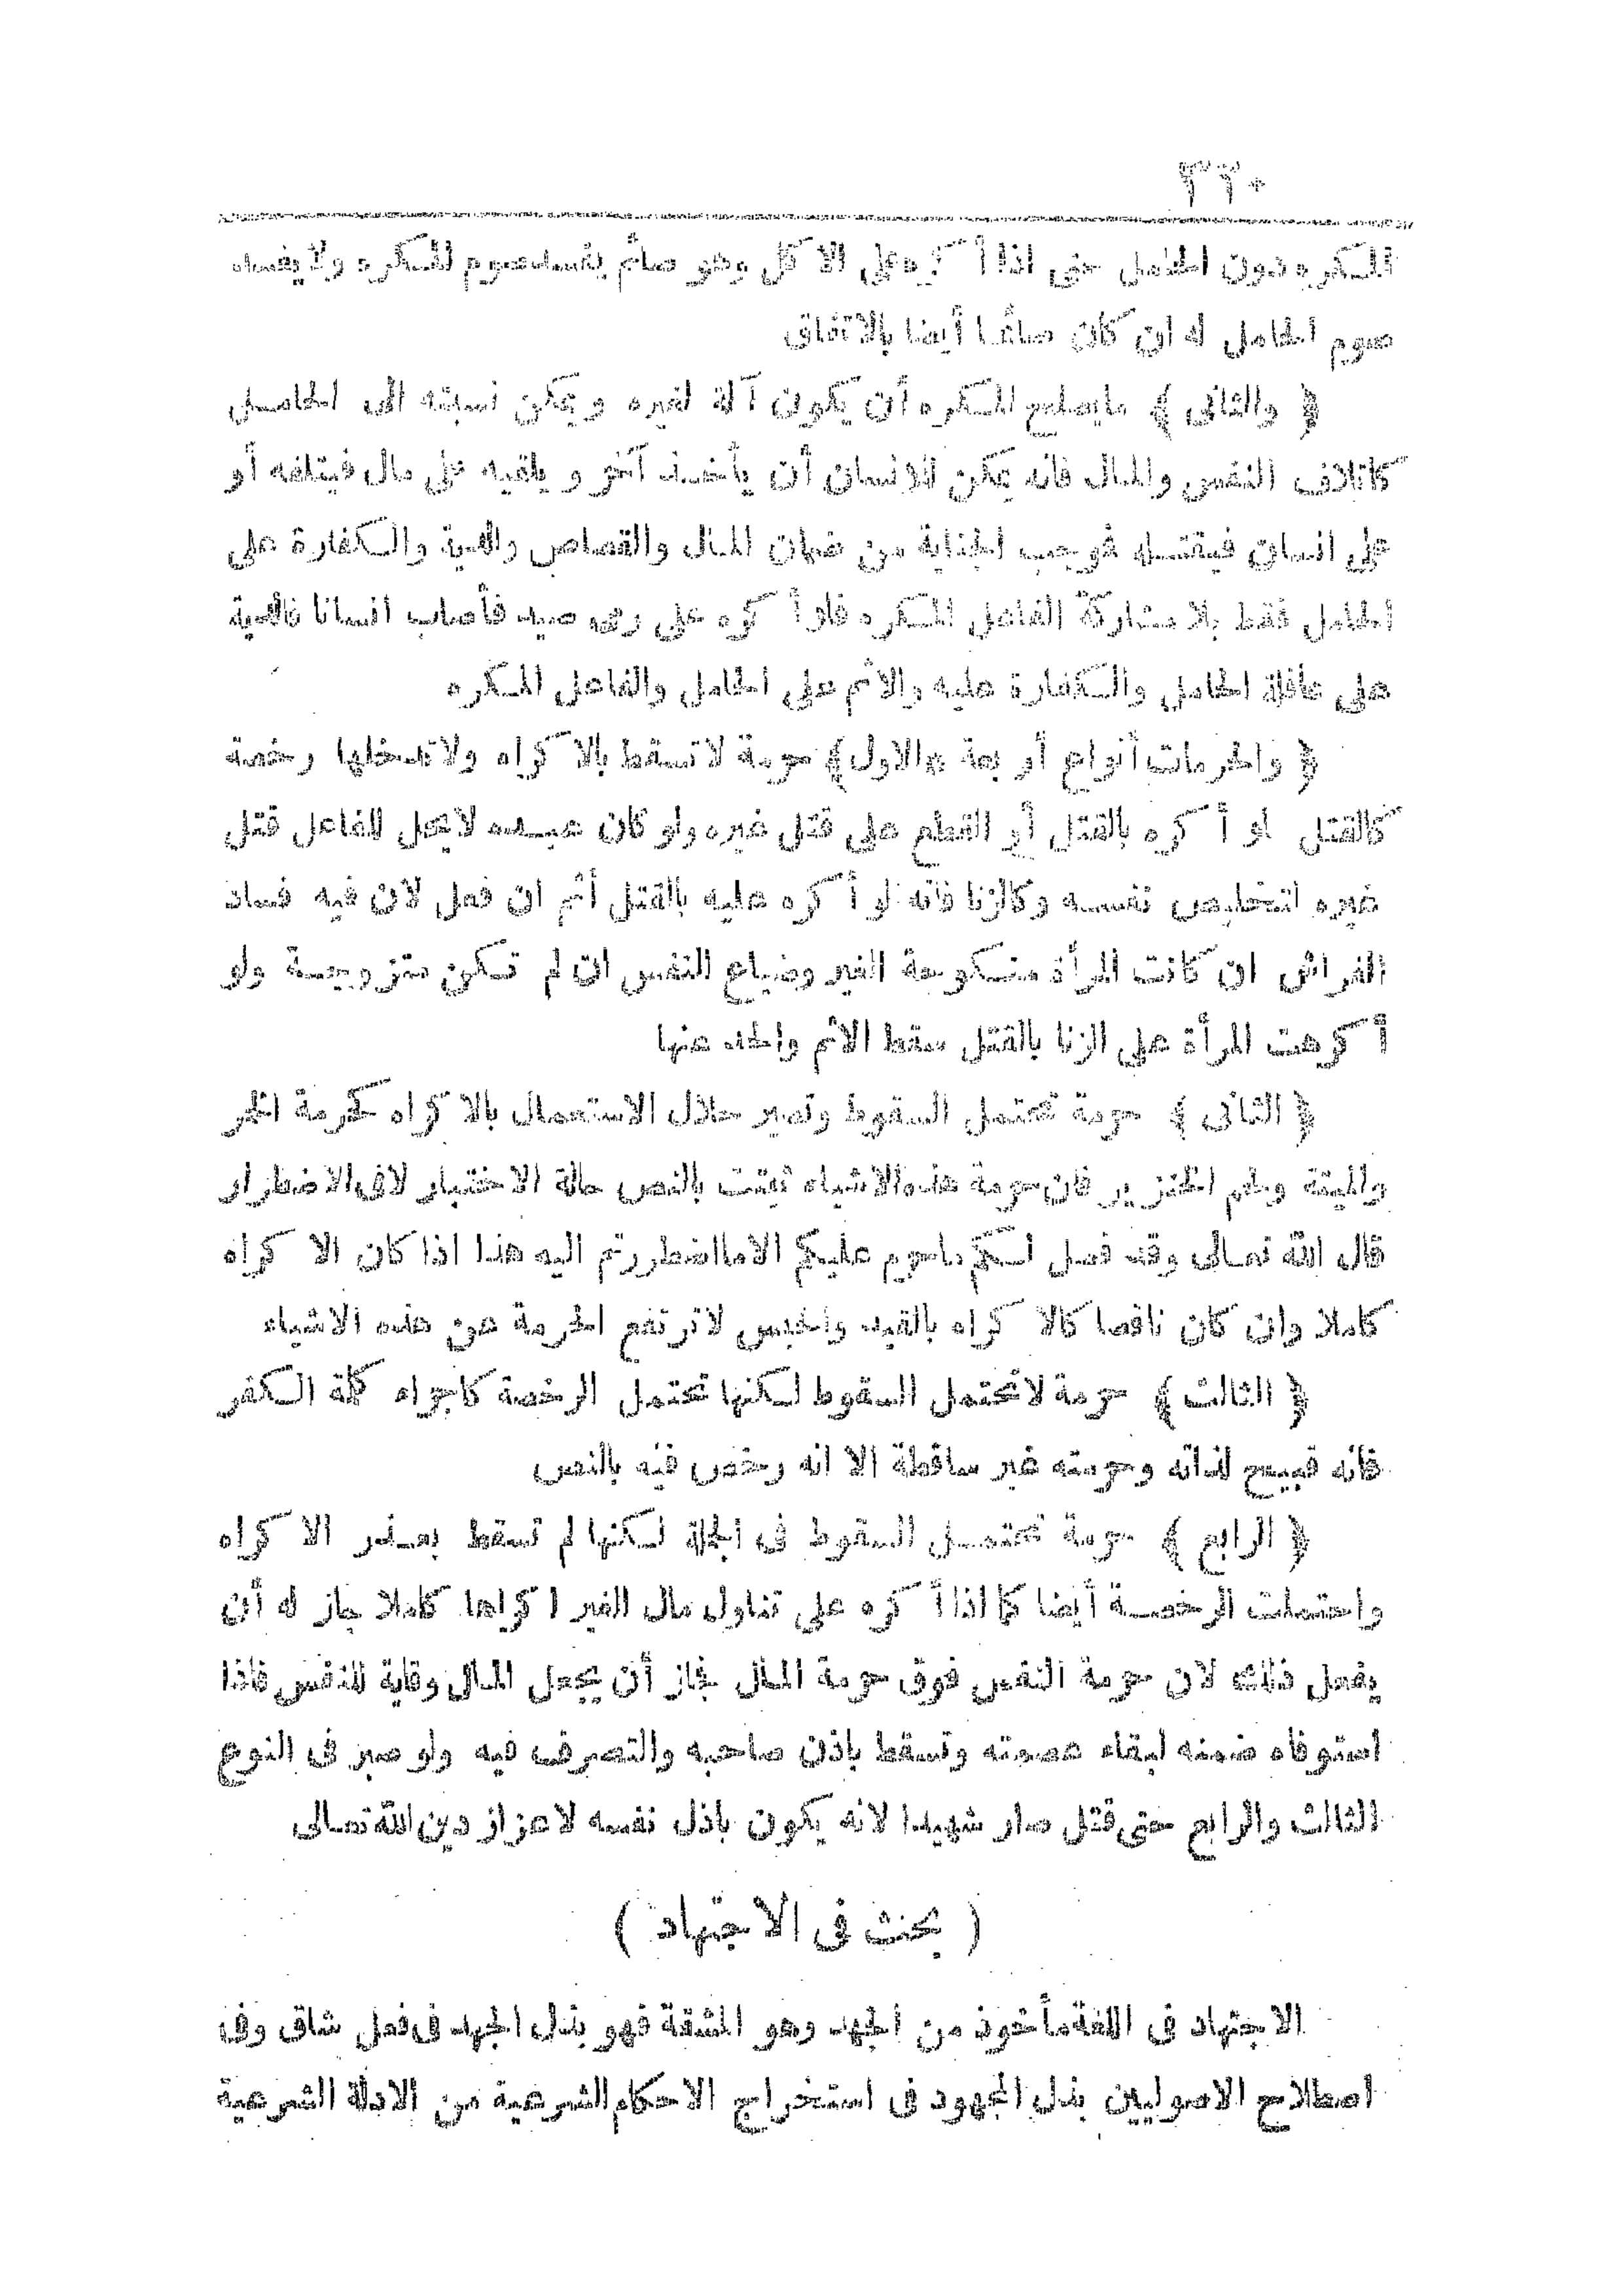 ٣٢٠
المكره دون الحامل حتى اذا أكره على الاكل وهو صائم يفسد صوم المكره ولا يفسد
صوم الحامل له ان كان صائما أيضا بالاتفاق
﴿ والثانى ﴾ ما يصلح المكره أن يكون آلة لغيره ويمكن نسبته الى الحامل
كاتلاف النفس والمال فانه يمكن للانسان أن يأخذ آخر ويلقيه على مال فيتلفه أو
على انسان فيقتله فموجب الجناية من ضمان المال والقصاص والدية والكفارة على
الحامل فقط بلا مشاركة الفاعل المكره فلو أكره على رمى صيد فأصاب انسانا فالدية
على عاقلة الحامل والكفارة عليه والاثم على الحامل والفاعل المكره
﴿ والحرمات أنواع أربعة * الاول ﴾ حرمة لا تسقط بالاكراه ولا تدخلها رخصة
كالقتل لو أكره بالقتل أو القطع على قتل غيره ولو كان عبده لا يحل للفاعل قتل
غيره لتخليص نفسه وكالزنا فانه لو أكره عليه بالقتل أثم ان فعل لان فيه فساد
الفراش ان كانت المرأة منكوحة الغير وضياع النفس ان لم تكن متزوجة ولو
أكرهت المرأة على الزنا بالقتل سقط الاثم والحد عنها
﴿ الثانى ﴾ حرمة تحتمل السقوط وتصير حلال الاستعمال بالاكراه كحرمة الخمر
والميتة ولحم الخنزير فان حرمة هذه الاشياء ثبتت بالنص حالة الاختيار لا فى الاضطرار
قال الله تعالى وقد فصل لكم ما حرم عليكم الا ما اضطررتم اليه هذا اذا كان الاكراه
كاملا وان كان ناقصا كالاكراه بالقيد والحبس لا ترتفع الحرمة عن هذه الاشياء
﴿ الثالث ﴾ حرمة لا تحتمل السقوط لكنها تحتمل الرخصة كاجراء كلمة الكفر
فانه قبيح لذاته وحرمته غير ساقطة الا انه رخص فيه بالنص
﴿ الرابع ﴾ حرمة تحتمل السقوط فى الجملة لكنها لم تسقط بعذر الاكراه
واحتملت الرخصة أيضا كما اذا أكره على تناول مال الغير اكراها كاملا جاز له أن
يفعل ذلك لان حرمة النفس فوق حرمة المال فجاز أن يجعل المال وقاية للنفس فاذا
استوفاه ضمنه لبقاء عصمته وتسقط باذن صاحبه والتصرف فيه ولو صبر فى النوع
الثالث والرابع حتى قتل صار شهيدا لانه يكون باذل نفسه لاعزاز دين الله تعالى
( بحث فى الاجتهاد )
الاجتهاد فى اللغة مأخوذ من الجهد وهو المشقة فهو بذل الجهد فى فعل شاق وفى
اصطلاح الاصوليين بذل المجهود فى استخراج الاحكام الشرعية من الادلة الشرعية